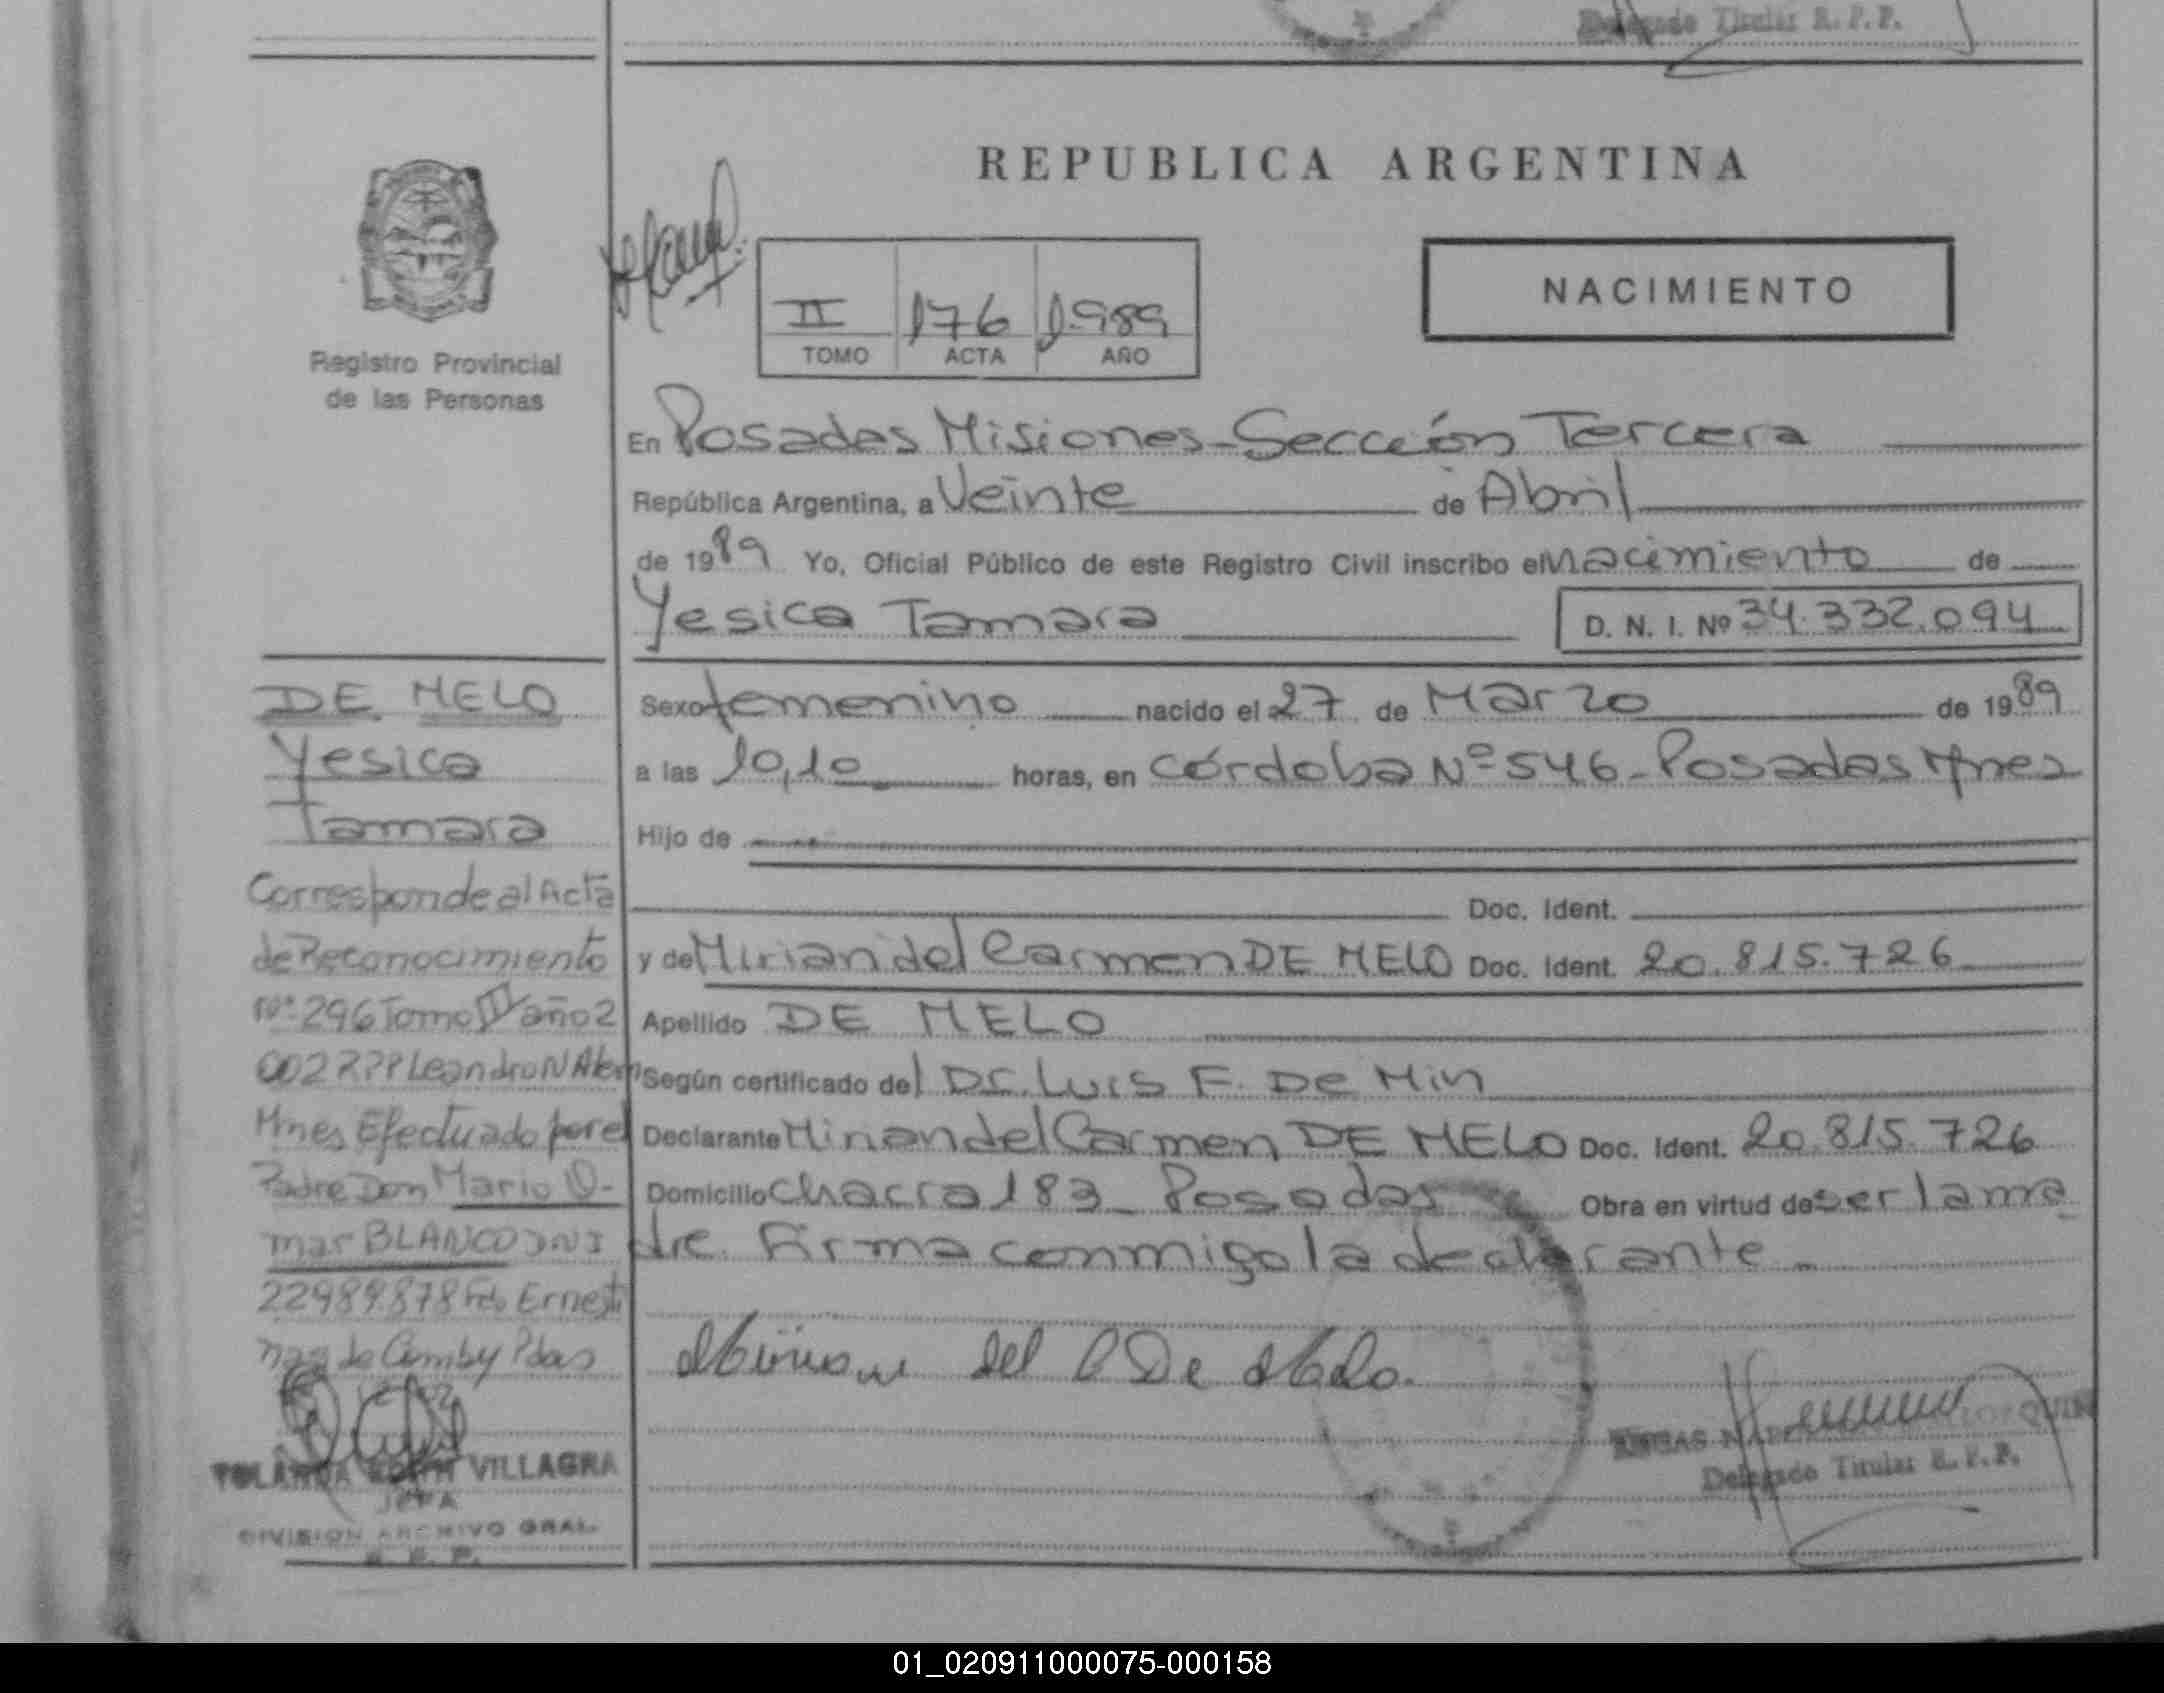 Delegado Titular R.P.P.
REPUBLICA ARGENTINA
NACIMIENTO
II 176 1.989
TOMO ACTA AÑO
Registro Provincial
de las Personas
En Posadas Misiones-Sección Tercera
República Argentina, a Veinte de Abril
de 1989 Yo, Oficial Público de este Registro Civil inscribo el nacimiento de
Yesica Tamara D. N. I. Nº 34.332.094
Sexo femenino nacido el 27 de Marzo de 1989
a las 10,10 horas, en córdoba Nº 546-Posadas Mnes
Hijo de
Doc. Ident.
y de Mirian del Carmen DE MELO Doc. Ident. 20.815.726
Apellido DE MELO
Según certificado del Dr. Luis F. De Min
Declarante Mirian del Carmen DE MELO Doc. Ident. 20.815.726
Domicilio chacra 183 - Posadas Obra en virtud de ser la ma
dre. Firma conmigo la declarante.
del C De Melo.
Delegado Titular R.P.P.
DE MELO
Yesica
Tamara
Corresponde al Acta
de Reconocimiento
Nº 296 Tomo año 2
002 RPP Leandro N Alem
Mnes Efectuado por el
Padre Don Mario O-
mar BLANCO DNI
22989.878 Fdo Ernest
Pdas
VILLAGRA
JEFA
DIVISION ARCHIVO GRAL.
R. P. P.
01_020911000075-000158